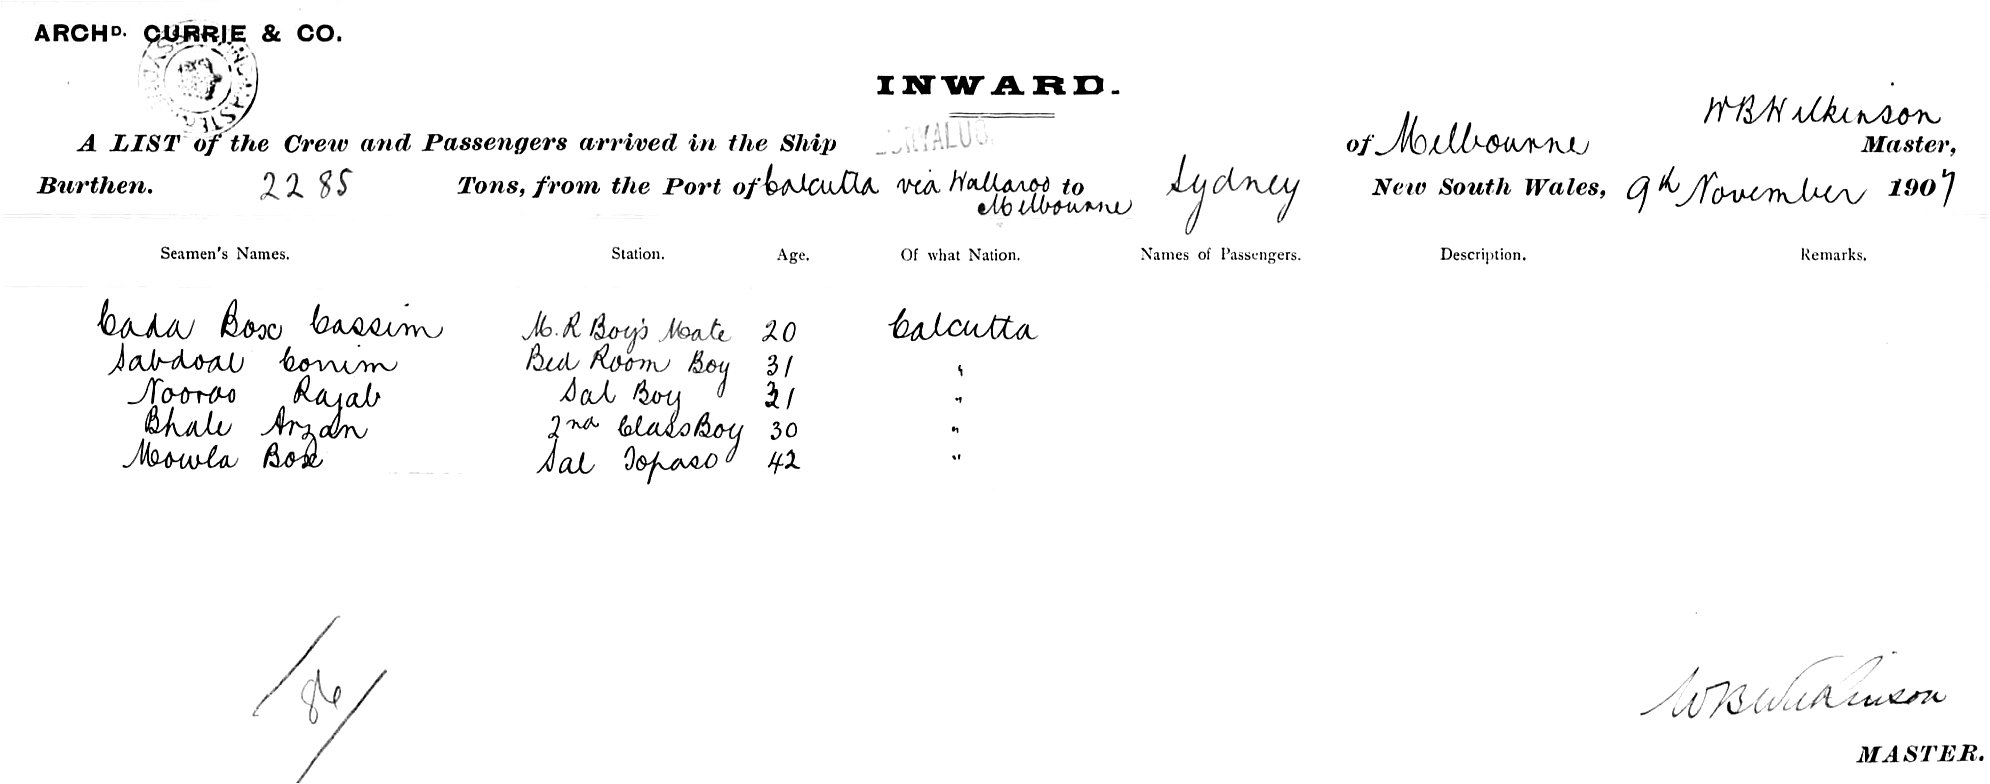 ARCHD. CURRIE & CO.
INWARD.
W B Wilkinson
A LIST of the Crew and Passengers arrived in the Ship of Melbourne Master,
Burthen. 2285 Tons, from the Port of Calcutta via Wallaroo to Melbourne Sydney New South Wales, 9th November 1907
Seamen's Names. Station. Age. Of what Nation. Names of Passengers. Description. Remarks.
Cada Box Cassim M. R Boy's Mate 20 Calcutta
Sabdoal Conim Bed Room Boy 31 "
Nooroo Rajab Sal Boy 21 "
Bhale Arzan 2nd Class Boy 30 "
Mowla Box Sal Topaso 42 "
86
W B Wilkinson
MASTER.